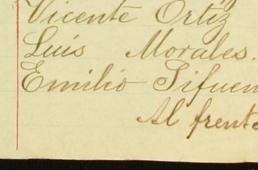 Vicente Ortiz
Luis Morales.
Emilio Sifuen
Al frent